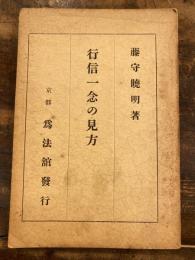 藤守曉明著
行信一念の見方
京都 爲法舘發行